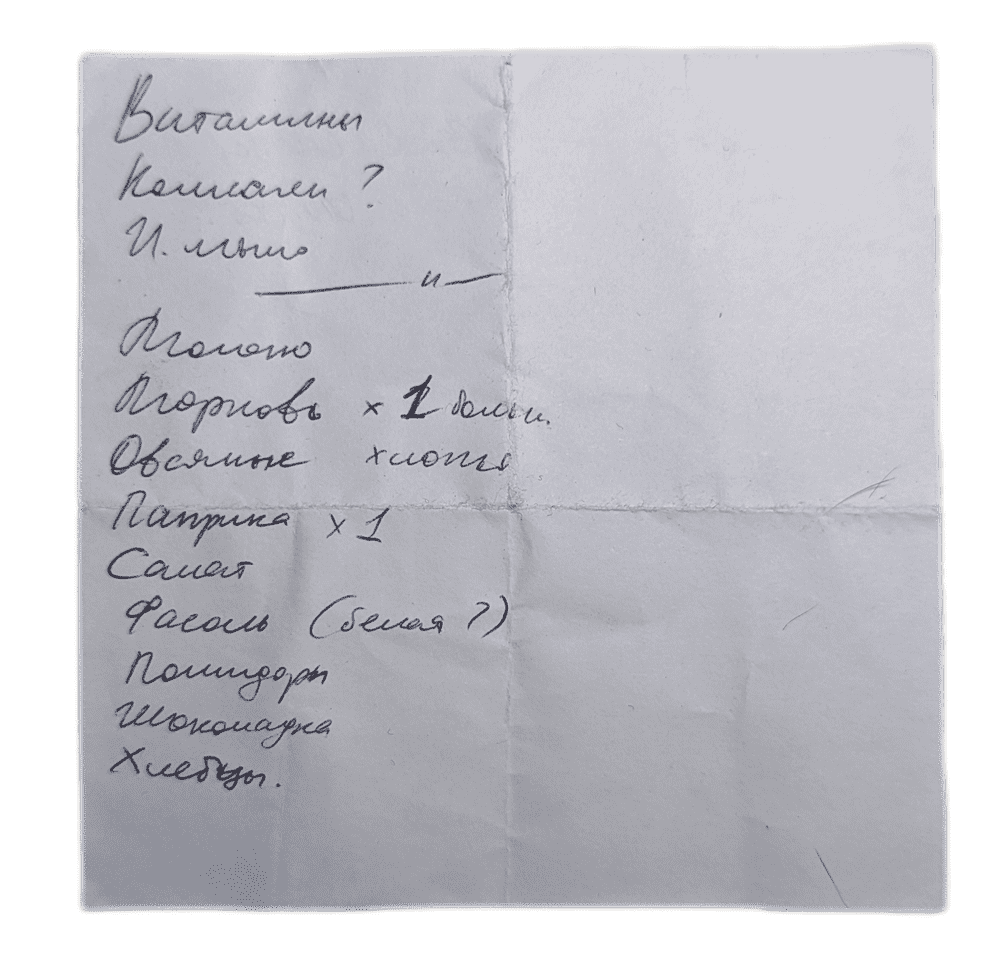 Витамины
Коллаген ?
И. мыло
— " —
Молоко
Морковь x 1 больш.
Овсяные хлопья
Паприка x 1
Салат
Фасоль (белая ?)
Помидоры
Шоколадка
Хлебцы.